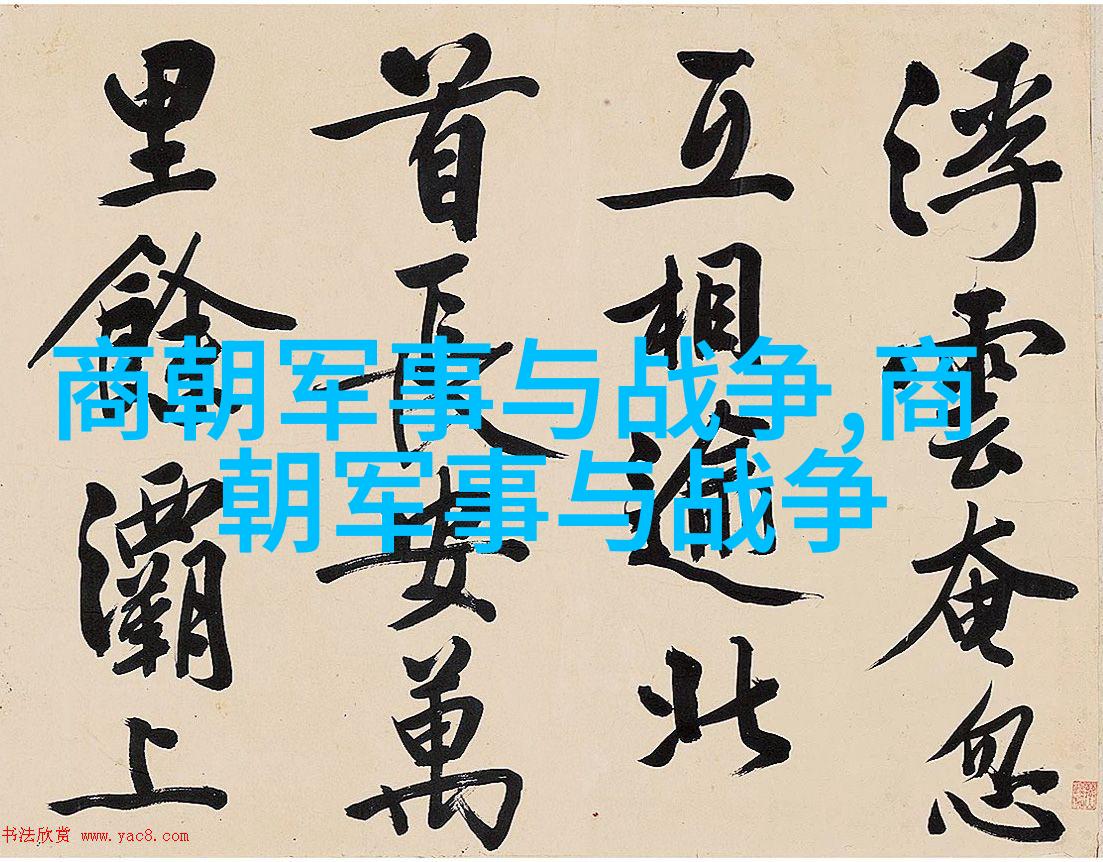 浮雲奄忽
互相逾北
首長安萬
里餘灞上
商朝军事与战争,商
朝军事与战争
书法欣赏 www.yac8.com